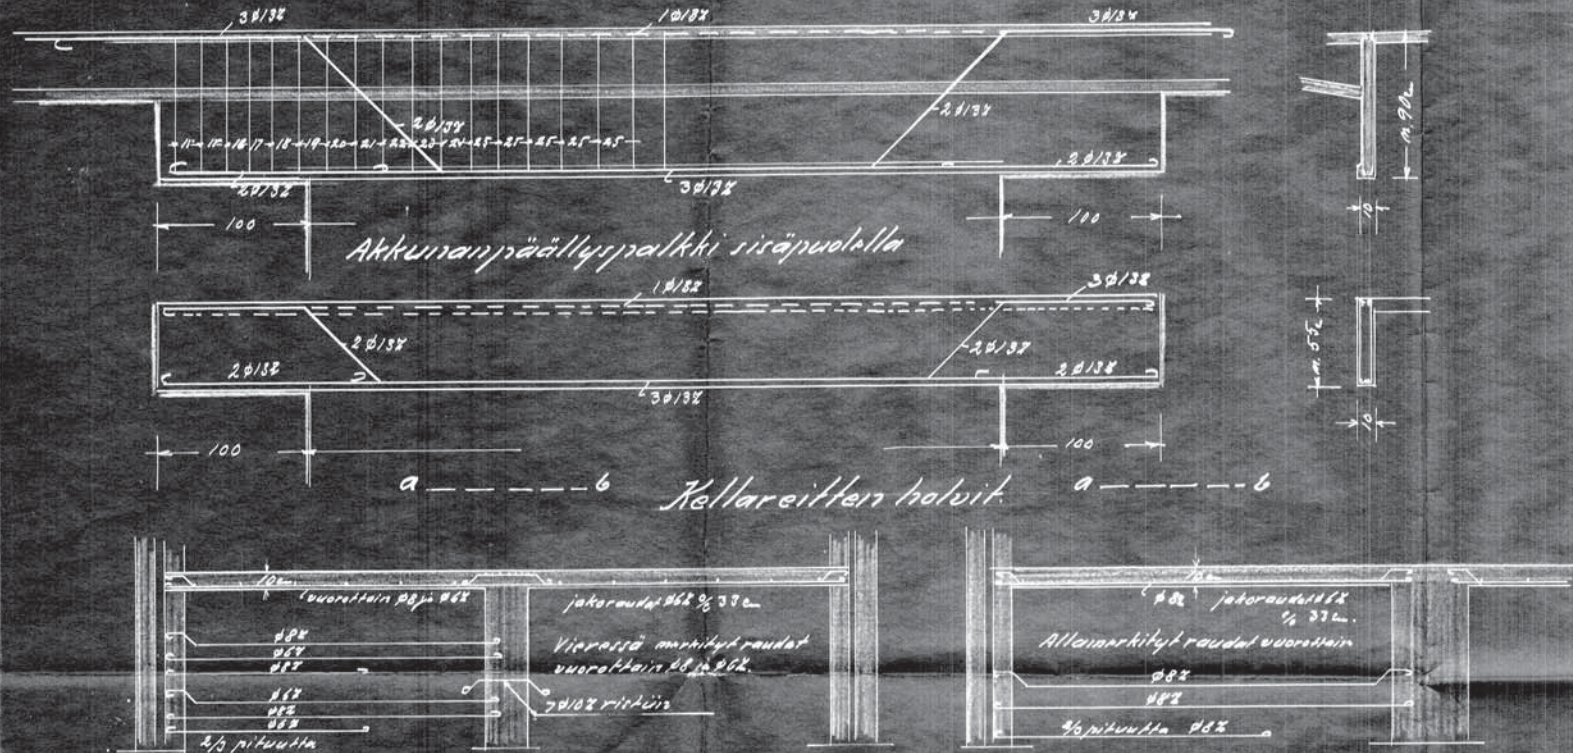 3ø13%
1ø18%
3ø13%
2ø13%
2ø13%
15 15 16 17 18 19 20 21 22 23 24 25 25 25 25 25
2ø13%
3ø13%
2ø13%
100
100
10
Akkunanpäällyspalkki sisäpuolella
1ø18%
3ø13%
2ø13%
2ø13%
2ø13%
2ø13%
3ø13%
10
100
100
a b
Kellareitten holvit.
a b
10 cm
vuorottain ø8 ja ø6%
jakoraudat ø6% % 33 cm
ø8%
jakoraudat ø6%
% 33 cm.
Vieressä merkityt raudat
vuorottain ø8 ja ø6%.
ø8%
ø6%
ø8%
ø6%
ø8%
ø6%
2/3 pituutta
7ø10% ristiin
Allamerkityt raudat vuorottain
ø8%
ø8%
2/3 pituutta ø8%